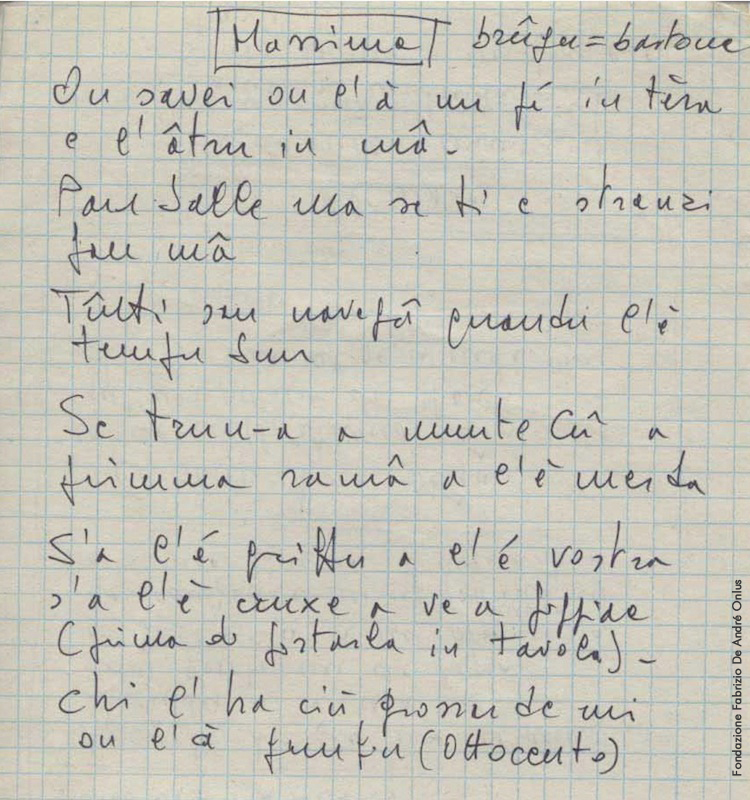 Massime brûgu = bastone
Ou savei ou l'à un pé in tèra
e l'âtru in mâ -
Pan Salle ma se ti e stranzi
pan mâ
Tûtti san navegâ quandu l'è
tempu bun
Se trun-a a munte Cû a
primma ramâ a l'è merda
S'a l'é grittu a l'é vostra
s'a l'è cruxe a ve a piggiae
(prima di portarla in tavola) -
Chi l'ha ciû grossu de mi
ou l'à (Ottocento)
Fondazione Fabrizio De André Onlus